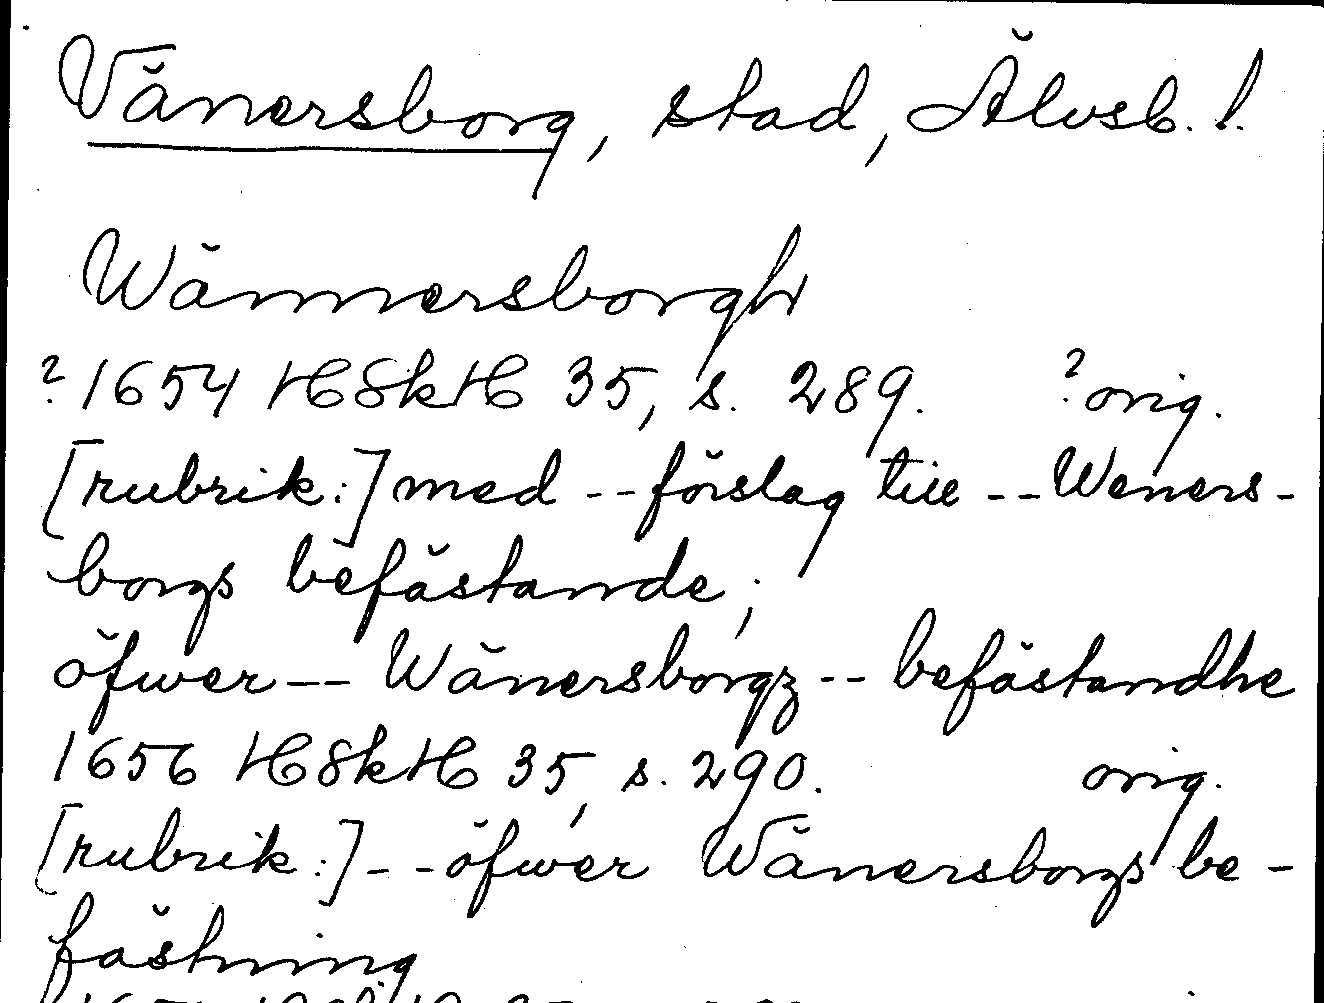 Vänersborg, stad, Älvsb. l.
Wännersborgh
? 1654 HSkH 35, s. 289. ? orig.
[rubrik:] med -- förslag till -- Weners-
borgs befästande;
öfwer -- Wänersborgz -- befästandhe
1656 HSkH 35, s. 290. orig.
[rubrik:] -- öfwer Wänersborgs be-
fästning